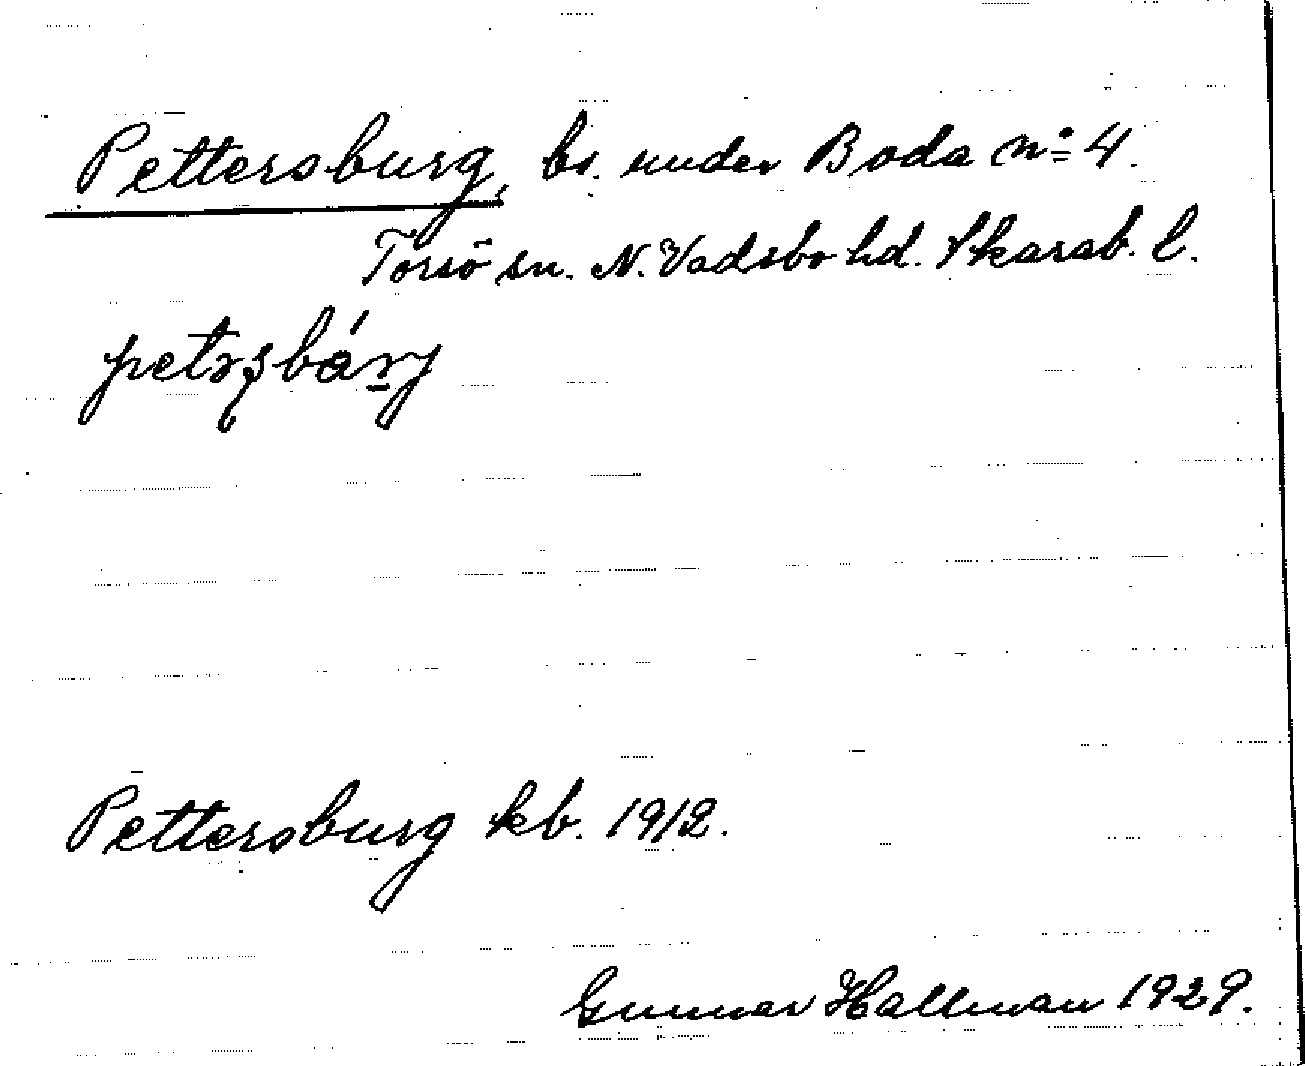 Pettersburg, bs. under Boda No 4.
Torsö sn. N. Vadsbo hd. Skarab. l.
Pettersburg kb. 1912.
Gunnar Hallman 1929.